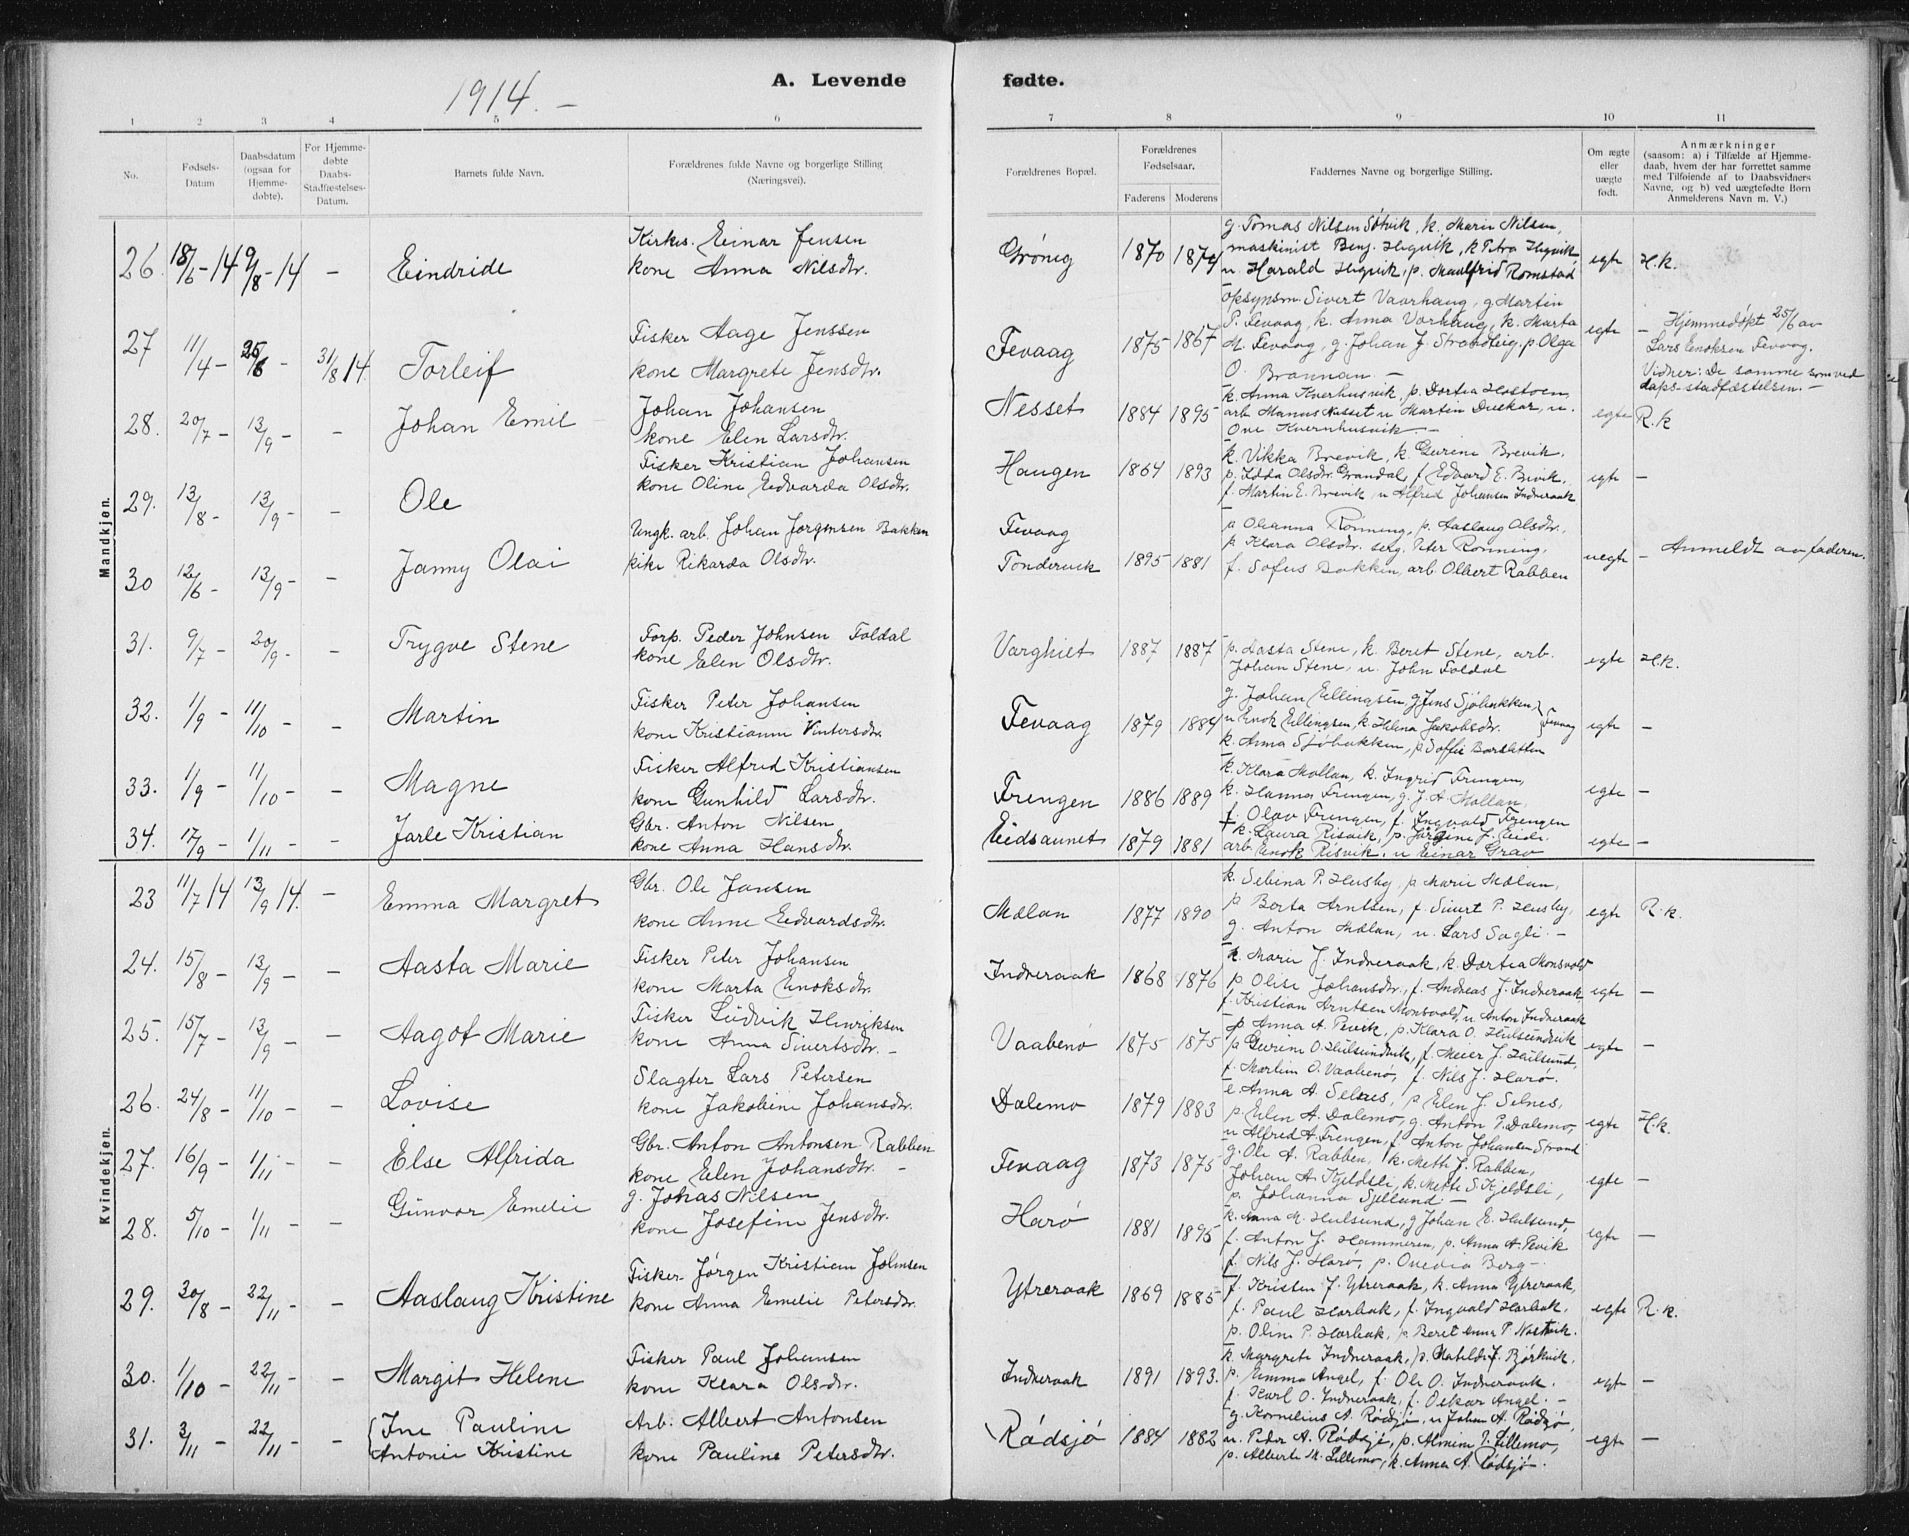 1914. —
A. Levende fødte.
1 2 3 4 5 6 7 8 9 10 11
No.
Fødsels-Datum
Daabsdatum (ogsaa for Hjemme-døbte).
For Hjemme-døbte Daabs-Stadfæstelses-Datum.
Barnets fulde Navn.
Forældrenes fulde Navne og borgerlige Stilling (Næringsvei).
Forældrenes Bopæl.
Forældrenes Fødselsaar.
Faderens Moderens
Faddernes Navne og borgerlige Stilling.
Om ægte eller uægte født.
Anmærkninger
(saasom: a) i Tilfælde af Hjemme-
daab, hvem der har forrettet samme
med Tilføiende af to Daabsvidners
Navne, og b) ved uægtefødte Born
Anmelderens Navn m. V.)
Mandkjøn.
26. 18/6-14 9/8-14 - Eindride
Kirkes. Einar Jensen
kone Anna Nilsdtr.
Grønig 1870 1879
g. Tomas Nilsen Søtvik, k. Marie Nilsen,
maskinist Benj. Hegvik, k Petra Hegvik
u. Harald Hegvik, p. Maalfrid Romstad
egte H.k.
27 11/4- 25/6- 31/8 14. Torleif
Fisker Aage Jenssen
kone Margrete Jensdtr.
Fevaag 1875 1867
opsynsm. Sivert Vaarhaug, g. Martin
P. Fevaag, k. Anna Varhaug, k. Marta
M. Fevaag, g. Johan J. Strandteig, p. Olga
O. Brannan. —
egte - Hjemmedøpt 25/6 av
Lars Enoksen Fevaag.
Vidner: De samme som ved
daps-stadfæstelsen. -
28. 20/7- 13/9- - Johan Emil
Johan Johansen
kone Elen Larsdtr.
Nesset 1884 1895
k. Anna Kverhusvik, p. Dortea
arb. Manus Nesset u Martin u.
Ove Kvernhusvik. -
egte R.k
29. 13/8- 13/9- - Ole
Fisker Kristian Johansen
kone Oline Edvarda Olsdtr.
Haugen 1864 1893
k. Vikka Brevik, k. Gurine Brevik.
p. Edda Olsdtr. Grandal, f. Edvard E. Brvik.
f. Martin E. Brevik, u Alfred Johansen Indreraak
egte -
30 12/6- 13/9- - Janny Olai
Ungk. arb. Johan Jørgensen Bakken
pike Rikarda Olsdtr.
Fevaag
Tonderuek 1895 1881
p Ohanna Rønning, p. Aaslaug Olsdtr.
p. Klara Olsdtr. serg. Peter Rønning,
f. Sofus Bakken, arb. Olbert Rabben
uegte - Anmeldt av faderen.
31. 9/7- 20/9- - Trygve Stene
Forp. Peder Johnsen Foldal
kone Elen Olsdtr.
Varghiet 1887 1887
p. Aasta Stene, k. Beret Stene, arb.
Johan Stene, u. John Foldal
egte H.k.
32. 1/9- 11/10- - Martin
Fisker Peter Johansen
kone Kristianna Vintersdtr.
Fevaag 1879 1884
g. Johan Ellingsen, g Jens Sjøbakken
u Enok Ellingsen, k. Helena Jakobsdtr. } Fevaag
k. Anna Sjøbakken, p Soffie Borsletten
egte -
33. 1/9- 11/10- - Magne
Fisker Alfred Kristiansen
kone Gunhild Larsdtr.
Frengen 1886 1889
k. Klara Mollan, k. Ingrid Frengen,
k. Hanna Frengen, g. J. A. Mollan,
f. Olav Frengen, f. Ingvald Frengen
egte -
34. 17/9- 1/11- - Jarle Kristian
Gbr. Anton Nilsen
kone Anna Hansdtr.
Eidsaunet 1879 1881
k. Laura Risvik, p. Jørgine J. Eide.
arb. Enok Risvik. u Einar Grav
egte -
Kvindekjøn.
23 11/7 14 13/9 14. - Emma Margret
Gbr. Ole Jansen
kone Anne Edvardsdtr.
Mælan 1877 1890
k. Sebina P. Husby, p Marie Mælan,
p Berta Arntsen, f. Sivert P. Husby,
g. Anton Mælan, u. Lars Sagli. -
egte R.k.
24. 15/8- 13/9- - Aasta Marie
Fisker Peter Johansen
kone Marta Enoksdtr.
Indreraak 1868 1876
k. Marie J. Indreraak, k. Dortea Monsvold
p Olise Johansdtr., f. Andreas J. Indreraak
f. Kristian Arntsen Monsvold, u Anton Indreraak
egte -
25. 15/7- 13/9- - Aagot Marie
Fisker Ludvik Henriksen
kone Anna Sivertsdtr. -
Vaabenø 1875 1875
p. Anna A. Pevik, p. Klara O. Hulsundvik
p Gurine O. Hulsundvik, f. Meier J. Hulsund,
f. Martin O. Vaabenø, f. Nils J. Harø.
egte -
26. 24/8- 11/10- - Lovise
Slagter Lars Petersen
kone Jakobine Johansdtr.
Dalemo 1879 1883
e Anna A. Selnes, p Elen J. Selnes,
p. Elen A. Dalemo, g. Anton P. Dalemo,
u Alfred A. Frengen, f. Anton Johansen Strand
egte H.k.
27. 16/9- 1/11- - Else Alfrida
Gbr. Anton Antonsen Rabben
kone Elen Johansdtr. -
Fevaag 1873 1875
g. Ole A. Rabben, k. Mette J. Rabben,
Johan A. Kjeldsli, k. Mette S. Kjeldsli,
p. Johanna Sjellund -
egte -
28. 5/10- 1/11- - Gunvor Emelie
g. Johas Nilsen
kone Josefine Jensdtr.
Harø 1881 1895
k. Anna M. Hulsund, g Johan E. Hulsund,
f. Anton J. Hammeren, p. Anna A. Pevik
f. Nils J. Harø, p. Ovedia Berg -
egte -
29. 30/8- 22/11- - Aaslaug Kristine
Fisker Jørgen Kristian Johnsen
kone Anna Emelie Petersdtr.
Ytreraak 1869 1885
f. Kristen J. Ytreraak, k. Anna Ytreraak,
f. Paul Harbak, f. Ingvald Harbak,
p. Oline P. Harbak, p. Beret Anna P. Nostvik.
egte R.k.
30. 1/10- 22/11- - Margit Helene
Fisker Paul Johansen
kone Klara Olsdtr.
Indreraak 1891 1893.
k. Margrete Indreraak, p. Matilde J. Bjørkvik,
p. Emma Angel, f. Ole O. Indreraak.
f. Karl O. Indreraak, f. Oskar Angel. -
egte -
31. 3/11- 22/11- - { Ine Pauline
Antonie Kristine
Arb. Albert Antonsen
kone Pauline Petersdtr.
Rødsjø 1884 1882
g. Kornelius A. Rødsjø, u Johan A. Rødsjø,
u. Peder A. Rødsjø, p. Almine J. Lillemo,
p. Alberte M. Lillemo, k. Anna A. Rødsjø.
egte -